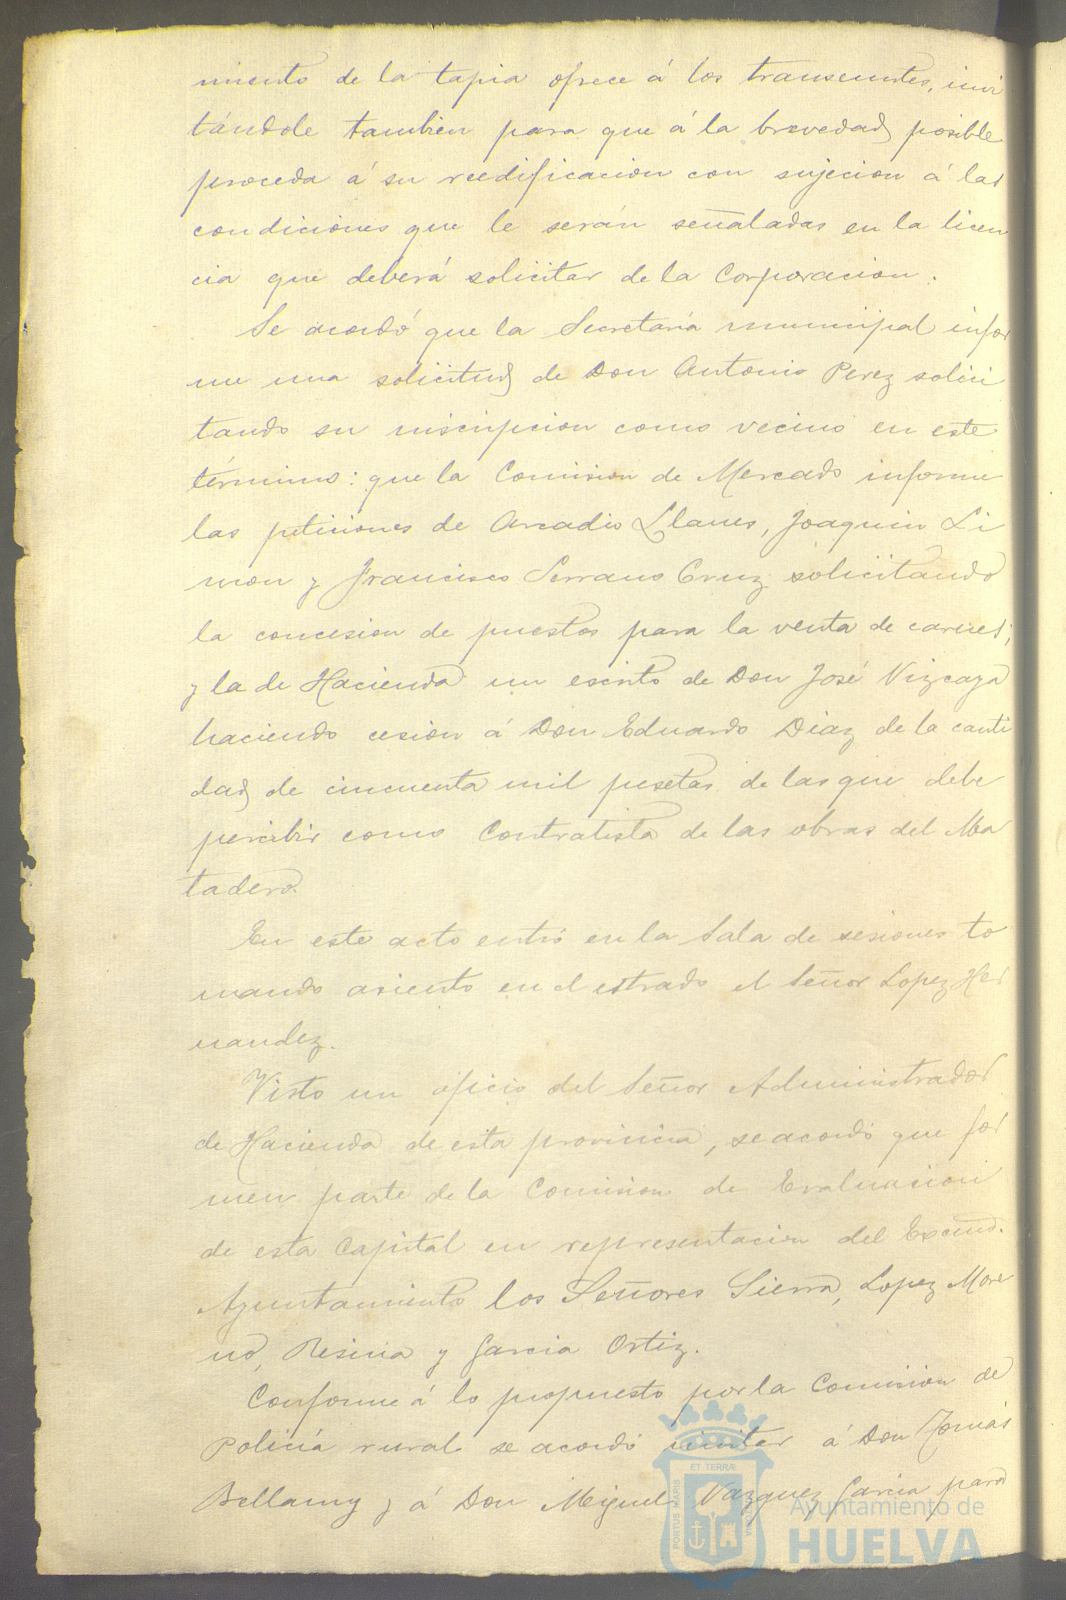 miento de la tapia ofrece á los transeuntes, invi
tándole tambien para que á la brevedad posible
proceda á su reedificacion con sujecion á las
condiciones que le serán señaladas en la licen
cia que deberá solicitar de la Corporacion.
Se acordó que la Secretaría municipal infor
me una solicitud de Don Antonio Perez solici
tando su inscripcion como vecino en este
término: que la Comision de Mercado informe
las peticiones de Arcadio Llanes, Joaquin Li
mon y Francisco Serrano Cruz solicitando
la concesion de puestos para la venta de carnes;
y la de Hacienda un escrito de Don José Vizcaya
haciendo cesion á Don Eduardo Diaz de la canti
dad de cincuenta mil pesetas de las que debe
percibir como Contratista de las obras del Ma
tadero.
En este acto entró en la Sala de sesiones to
mando asiento en el estrado el Señor Lopez Her
nandez.
Visto un oficio del Señor Administrador
de Hacienda de esta provincia, se acordó que for
men parte de la Comision de Evaluacion
de esta Capital en representacion del Excmo.
Ayuntamiento los Señores Sierra, Lopez More
no, Resina y Garcia Ortiz.
Conforme á lo propuesto por la Comision de
Policía rural se acordó invitar á Don Tomás
Bellamy y á Don Miguel Vazquez Garcia para
PORTUS MARIS ET TERRÆ
Ayuntamiento de
HUELVA